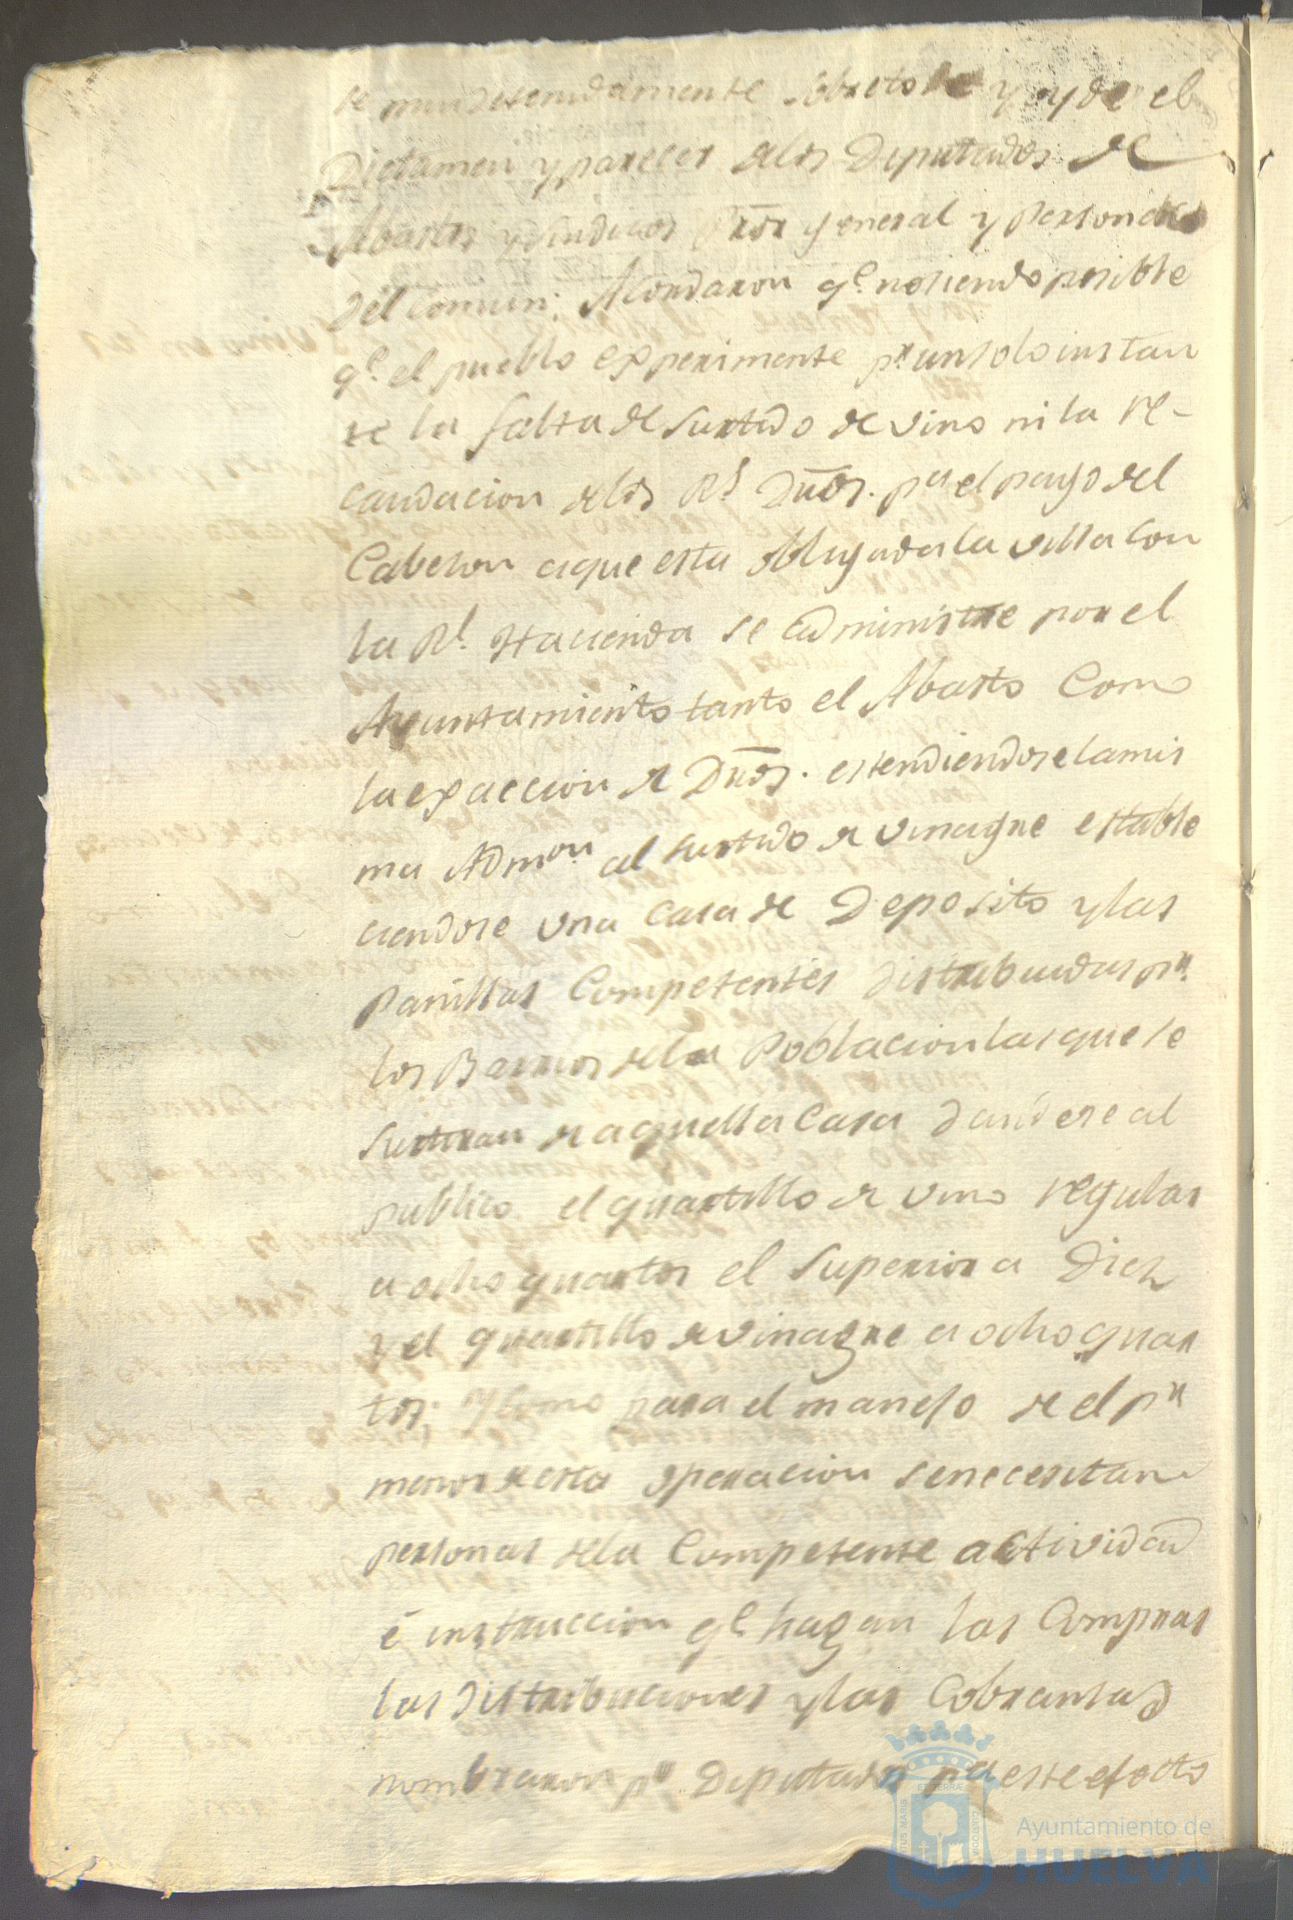 te mui detenidamente sobre todo y oydo el
Dictamen y parecer delos Diputados de
Abastos y sindicos Pror general y Personero
del comun; Acordaron q.e no siendo posible
q.e el pueblo experimente p.r un solo instan
te la falta de surtido de vino ni la re-
caudacion delos R.s Dños. p.a el pago del
Cabeson aque esta obligada la villa con
la R.l Hacienda se administre por el
Ayuntamiento tanto el Abasto Como
la exaccion de Dños. estendiendose la mis
ma Admon. al surtido de vinagre estable
ciendose una Casa de Deposito y las
Panillas Competentes distribuidas p.r
los Barrios dela Poblacion las que se
surtiran de aquella Casa dandose al
publico el quartillo de vino regular
a ocho quartos el superior a Diez
y el quartillo de vinagre a ocho quar
tos; y como para el manejo de el p.r
menor de esta operacion se necesitan
personas dela Competente actividad
é instruccion q.e hagan las Compras
las distribuciones y las Cobransas
nombraron p.r Diputados p.a este efecto
Ayuntamiento de
HUELVA